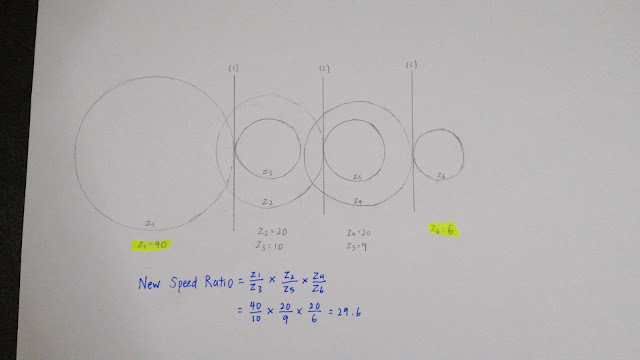 (1) (2) (3)
Z3 Z5 Z6
Z2 Z4
Z1
Z1 = 40 Z2 = 20 Z4 = 20 Z6 = 6
Z3 = 10 Z5 = 9
New Speed Ratio = Z1/Z3 × Z2/Z5 × Z4/Z6
= 40/10 × 20/9 × 20/6 = 29.6